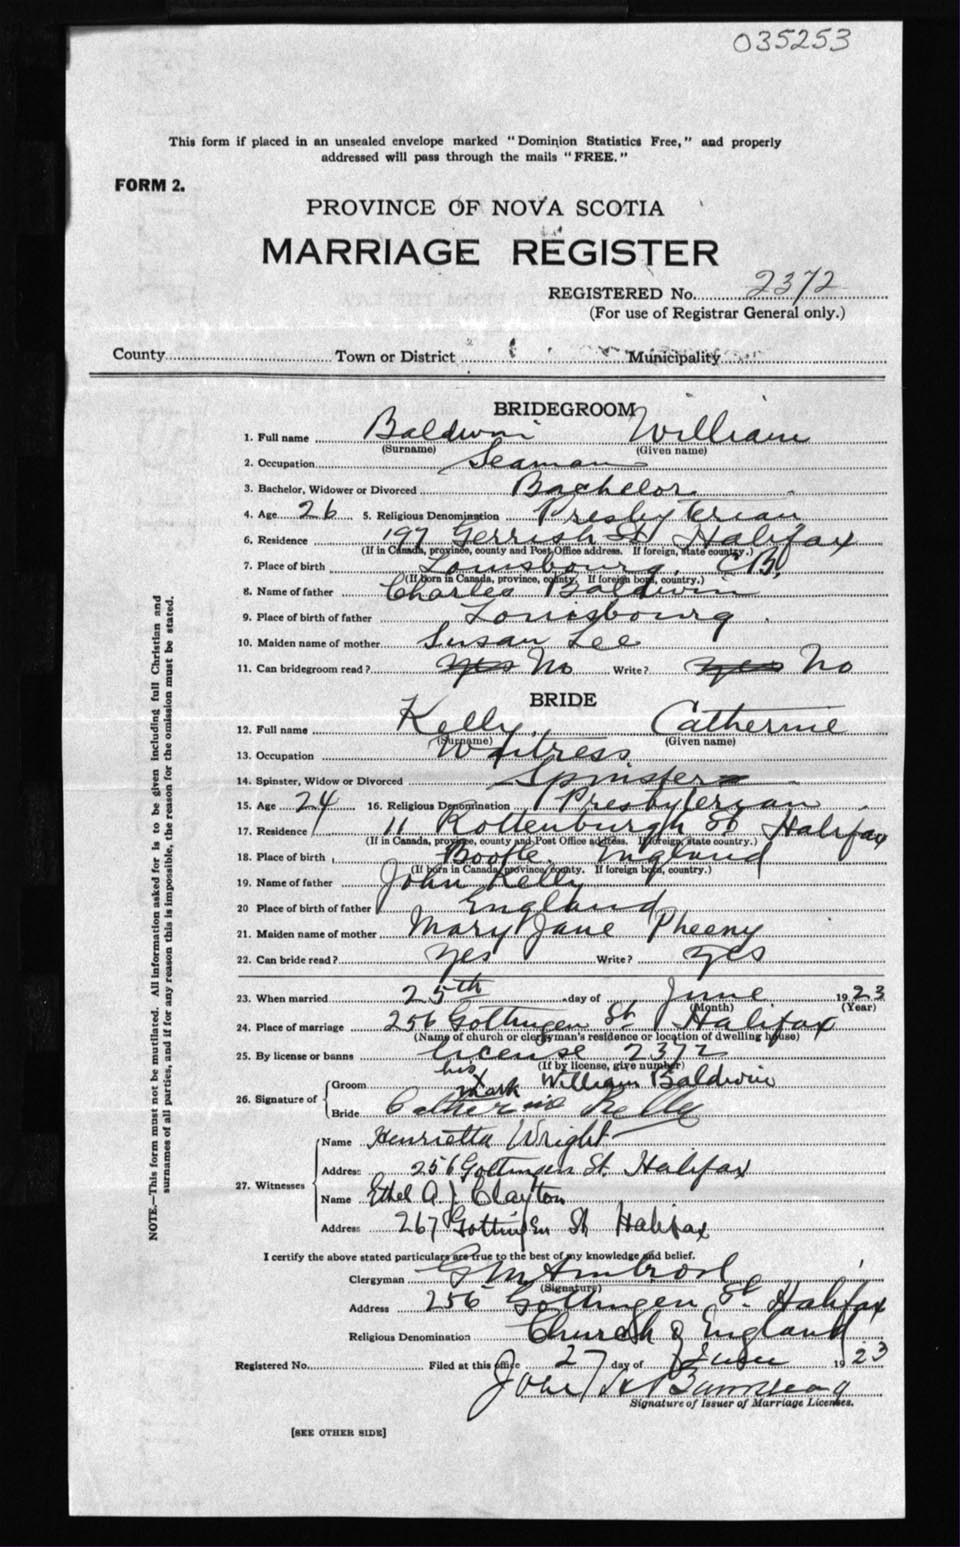 035253
This form if placed in an unsealed envelope marked "Dominion Statistics Free," and properly
addressed will pass through the mails "FREE."
FORM 2.
PROVINCE OF NOVA SCOTIA
MARRIAGE REGISTER
REGISTERED No. 2372
(For use of Registrar General only.)
County Town or District Municipality
BRIDEGROOM
1. Full name Baldwin William
(Surname) (Given name)
2. Occupation Seaman
3. Bachelor, Widower or Divorced Bachelor
4. Age 26 5. Religious Denomination Presbyterian
6. Residence 197 Gerrish St Halifax
(If in Canada, province, county and Post Office address. If foreign, state country.)
7. Place of birth Louisbourg, C.B.
(If born in Canada, province, county. If foreign born, country.)
8. Name of father Charles Baldwin
9. Place of birth of father Louisbourg
10. Maiden name of mother Susan Lee
11. Can bridegroom read? yes No Write? yes No
BRIDE
12. Full name Kelly Catherine
(Surname) (Given name)
13. Occupation Waitress
14. Spinster, Widow or Divorced Spinster
15. Age 24 16. Religious Denomination Presbyterian
17. Residence 11 Rottenburgh St Halifax
(If in Canada, province, county and Post Office address. If foreign, state country.)
18. Place of birth Bootle, England
(If born in Canada, province, county. If foreign born, country.)
19. Name of father John Kelly
20 Place of birth of father England
21. Maiden name of mother Mary Jane Pheeny
22. Can bride read? Yes Write? Yes
23. When married 25th day of June 1923
(Month) (Year)
24. Place of marriage 256 Gottingen St. Halifax
(Name of church or clergyman's residence or location of dwelling house)
25. By license or banns License 2372
(If by license, give number)
26. Signature of
Groom his X mark William Baldwin
Bride Catherine Kelly
27. Witnesses
Name Henrietta Wright
Address 256 Gottingen St. Halifax
Name Ethel A J Clayton
Address 267 Gottingen St Halifax
I certify the above stated particulars are true to the best of my knowledge and belief.
Clergyman G M Ambrose
(Signature)
Address 256 Gottingen St. Halifax
Religious Denomination Church of England
Registered No. Filed at this office 27 day of June 1923
John H
Signature of Issuer of Marriage Licenses.
[SEE OTHER SIDE]
NOTE.—This form must not be mutilated. All information asked for is to be given including full Christian and
surnames of all parties, and if for any reason this is impossible, the reason for the omission must be stated.